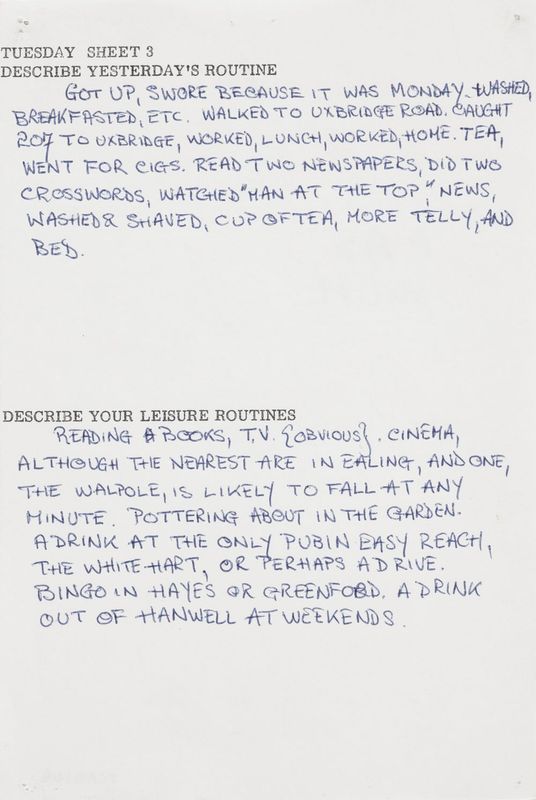 TUESDAY SHEET 3
DESCRIBE YESTERDAY'S ROUTINE
GOT UP, SWORE BECAUSE IT WAS MONDAY. WASHED,
BREAKFASTED, ETC. WALKED TO UXBRIDGE ROAD. CAUGHT
207 TO UXBRIDGE, WORKED, LUNCH, WORKED, HOME. TEA,
WENT FOR CIGS. READ TWO NEWSPAPERS, DID TWO
CROSSWORDS, WATCHED "MAN AT THE TOP", NEWS,
WASHED & SHAVED, CUP OF TEA, MORE TELLY, AND
BED.
DESCRIBE YOUR LEISURE ROUTINES
READING BOOKS, T.V. {OBVIOUS}. CINEMA,
ALTHOUGH THE NEAREST ARE IN EALING, AND ONE,
THE WALPOLE, IS LIKELY TO FALL AT ANY
MINUTE. POTTERING ABOUT IN THE GARDEN.
A DRINK AT THE ONLY PUB IN EASY REACH,
THE WHITE HART, OR PERHAPS A DRIVE.
BINGO IN HAYES OR GREENFORD. A DRINK
OUT OF HANWELL AT WEEKENDS.